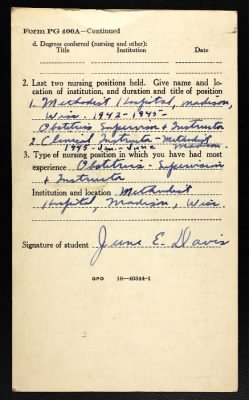 Form PG 400A—Continued
d. Degrees conferred (nursing and other):
Title Institution Date
2. Last two nursing positions held. Give name and lo-
cation of institution, and duration and title of position
1. Methodist Hospital, Madison,
Wis. 1942-1945-
Obstetrics Supervisor & Instructor
2. Clinical Instructor - Methodist
1945 - Jan - June Madison
3. Type of nursing position in which you have had most
experience Obstetrics - Supervision
& Instructor
Institution and location Methodist
Hospital, Madison, Wis.
Signature of student June E. Davis
GPO 16—40344-1